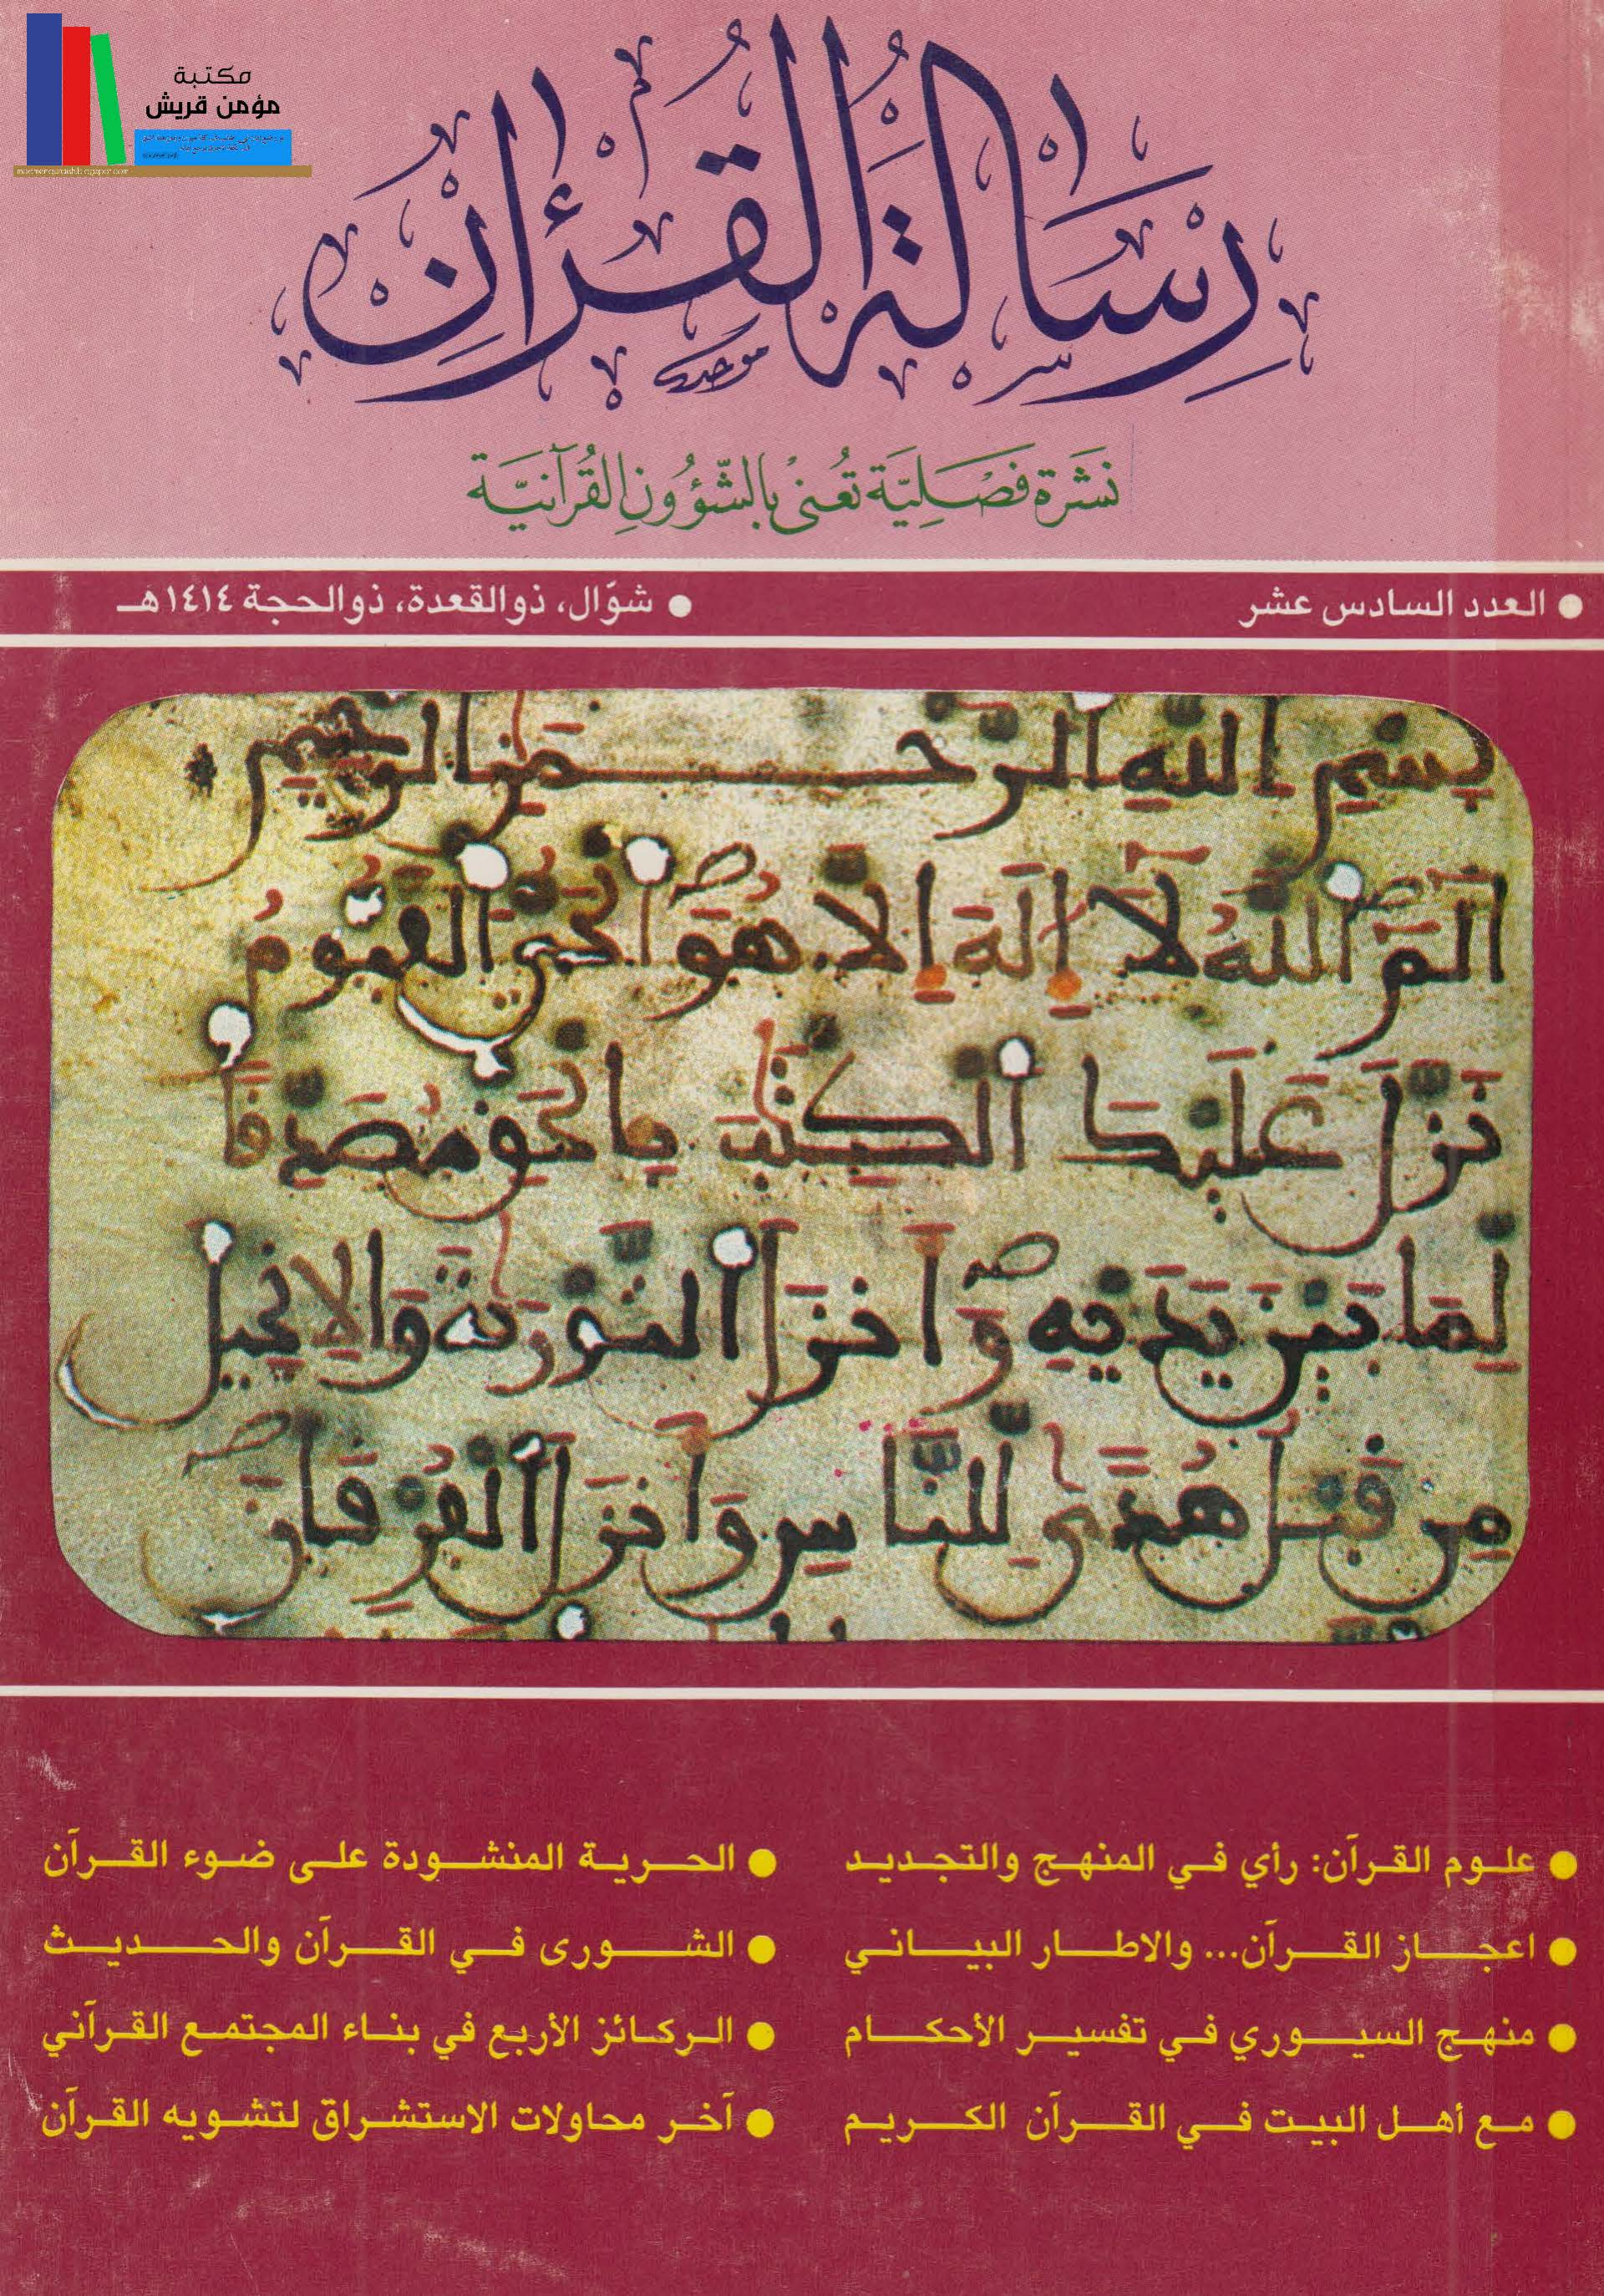 مكتبة
مؤمن قريش
رسالة القرءان
نشرة فصلية تعنى بالشؤون القرآنية
● العدد السادس عشر
● شوّال، ذوالقعدة، ذوالحجة ١٤١٤هـ
بسم الله الرحمن الرحيم
الم الله لا إله إلا هو الحي القيوم
نزل عليك الكتب بالحق مصدقا
لما بين يديه وأنزل التورية والإنجيل
من قبل هدى للناس وأنزل الفرقان
● علوم القرآن: رأي في المنهج والتجديد
● اعجاز القرآن... والاطار البياني
● منهج السيوري في تفسير الأحكام
● مع أهل البيت في القرآن الكريم
● الحرية المنشودة على ضوء القرآن
● الشورى في القرآن والحديث
● الركائز الأربع في بناء المجتمع القرآني
● آخر محاولات الاستشراق لتشويه القرآن